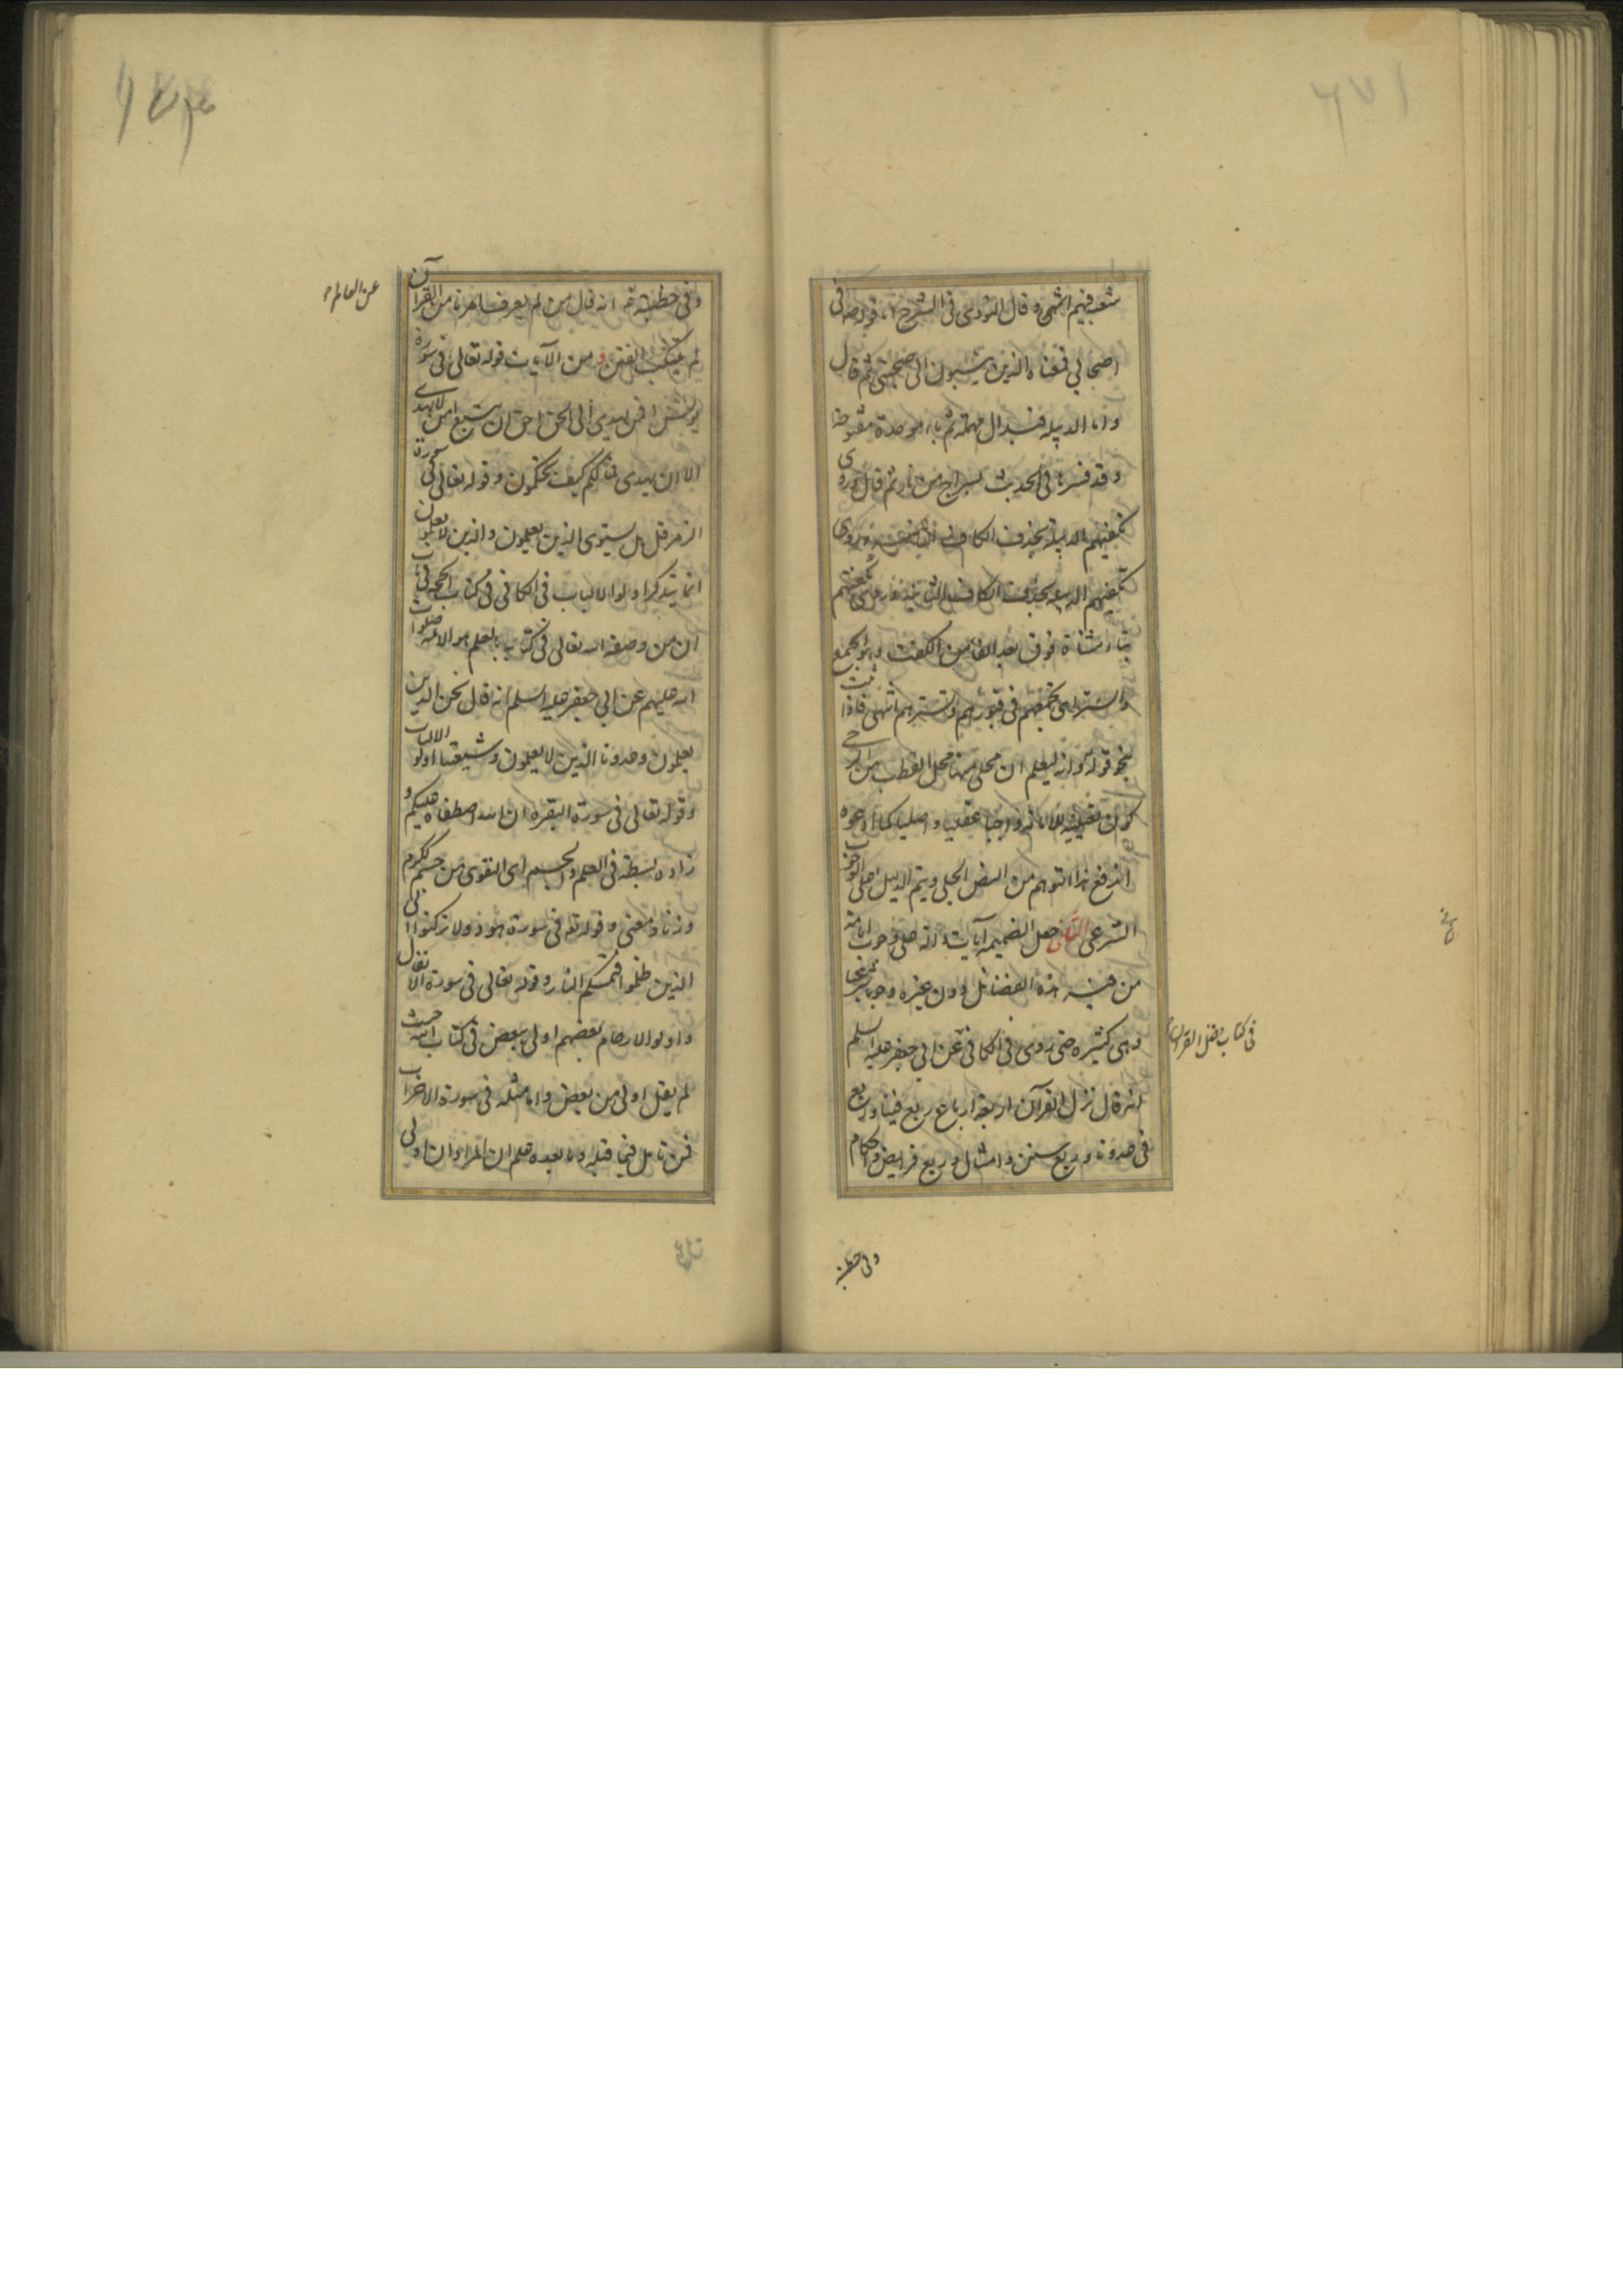 شعبه فيهم انتهى وقال النووى فى الشرح اما قوله صه فى
اصحابي فمعناه الذين ينسبون الى صحبتى ثم قال
واما الدبيله فبدال مهملة ثم باء موحدة مفتوحة
وقد فسرها فى الحديث بسراج من نار ثم قال وروى
تكفيهم الدبيلة بحذف الكاف الثانية وروى
تكفتهم
بتاء مثناة فوق بعد الفاء من الكفت وهو الجمع
والستر اى تجمعهم فى قبورهم وتسترهم انتهى فاذا ثبت
نحو قوله وانه ليعلم ان محلى منها محل القطب من الرحى
كون تفضيليه للامامة واجبا عقليا واصليا كما ادعوه
اندفع هذا التوهم من النص الجلى ويتم الدليل على الوجوب
الشرعى الثانى جعل الضميمه آيات دالة على وجوب امامة
من فيه هذه الفضائل دون غيره وجوبا شرعيا
وهى كثيره حتى روى فى الكافى عن ابي جعفر عليه السلم
انه قال نزل القرآن اربعة ارباع ربع فينا وربع
فى عدونا وربع سنن وامثال وربع فرايض واحكام
فى كتاب فضل القرآن
وفى خطبة
وفى خطبته انه قال من لم يعرف امرنا من القرآن
عن العالم
لم يتنكب الفتن و من الآيات قوله تعالى فى سورة
يونس افمن يهدى الى الحق احق ان يتبع امن لا يهدى
الا ان يهدى فما لكم كيف تحكمون وقوله تعالى فى سورة
الزمر قل هل يستوى الذين يعلمون والذين لا يعلمون
انما يتذكر اولوا الالباب فى الكافى فى كتاب الحجه فى باب
ان من وصفه الله تعالى فى كتابه بالعلم هو الائمه صلوات
الله عليهم عن ابي جعفر عليه السلم انه قال نحن الذين
يعلمون وعدونا الذين لا يعلمون وشيعتنا اولو الالباب
وقوله تعالى فى سورة البقره ان الله اصطفاه عليكم و
زاده بسطة فى العلم والجسم اى التقوى من جسم ككرم
وزنا ومعنى وقوله تعه فى سورة هود ولا تركنوا الى
الذين ظلموا فتمسكم النار وقوله تعالى فى سورة الانفال
واولوا الارحام بعضهم اولى ببعض فى كتاب الله حيث
لم يقل اولى من بعض واما مثله فى سورة الاحزاب
فمن تامل فيما قبله وما بعده علم ان المراد ان اولى